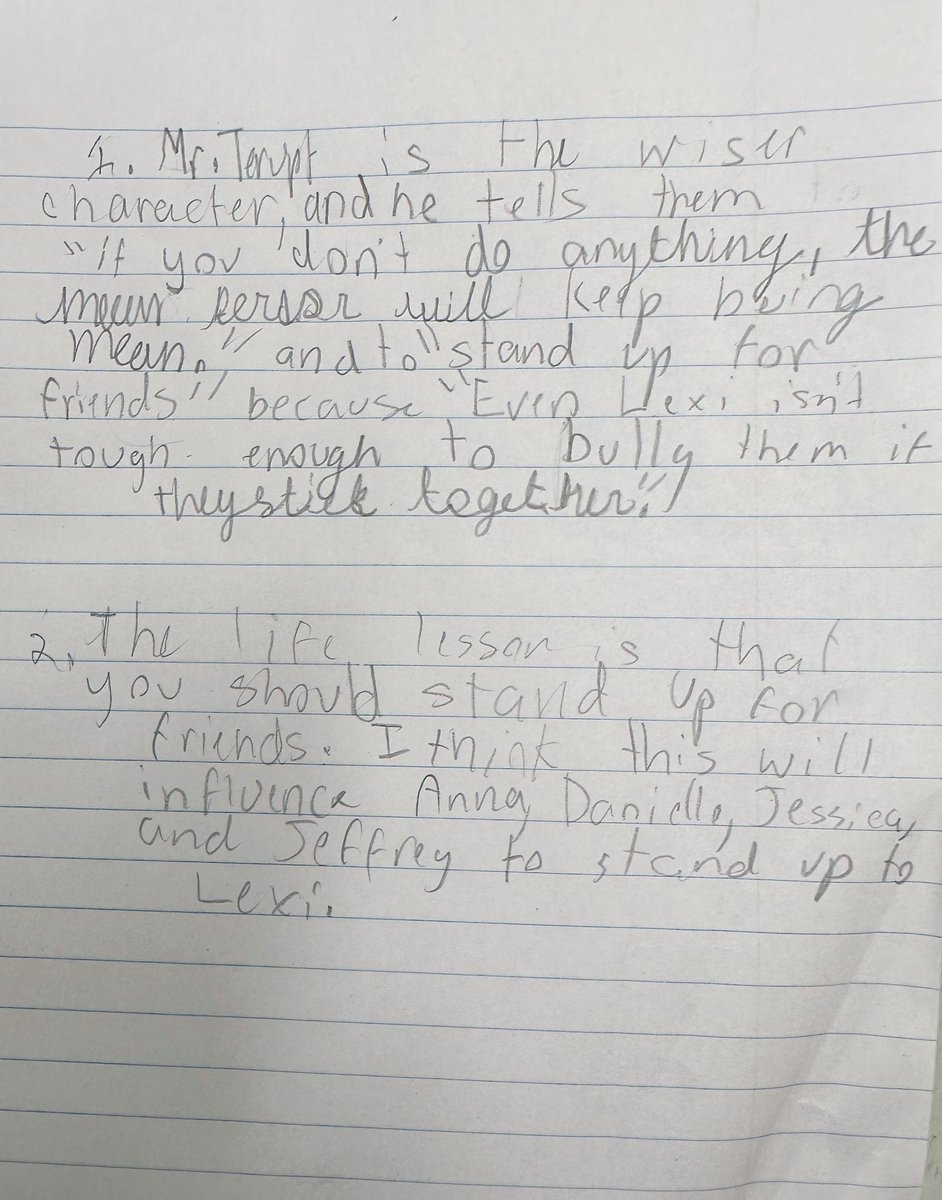 1. Mr. Terupt is the wiser
character, and he tells them
"if you don't do anything, the
mean person will keep being
mean." and to "stand up for
friends" because "Even Lexi isn't
tough enough to bully them if
they stick together."
2. The life lesson is that
you should stand up for
friends. I think this will
influence Anna, Danielle, Jessica,
and Jeffrey to stand up to
Lexi.